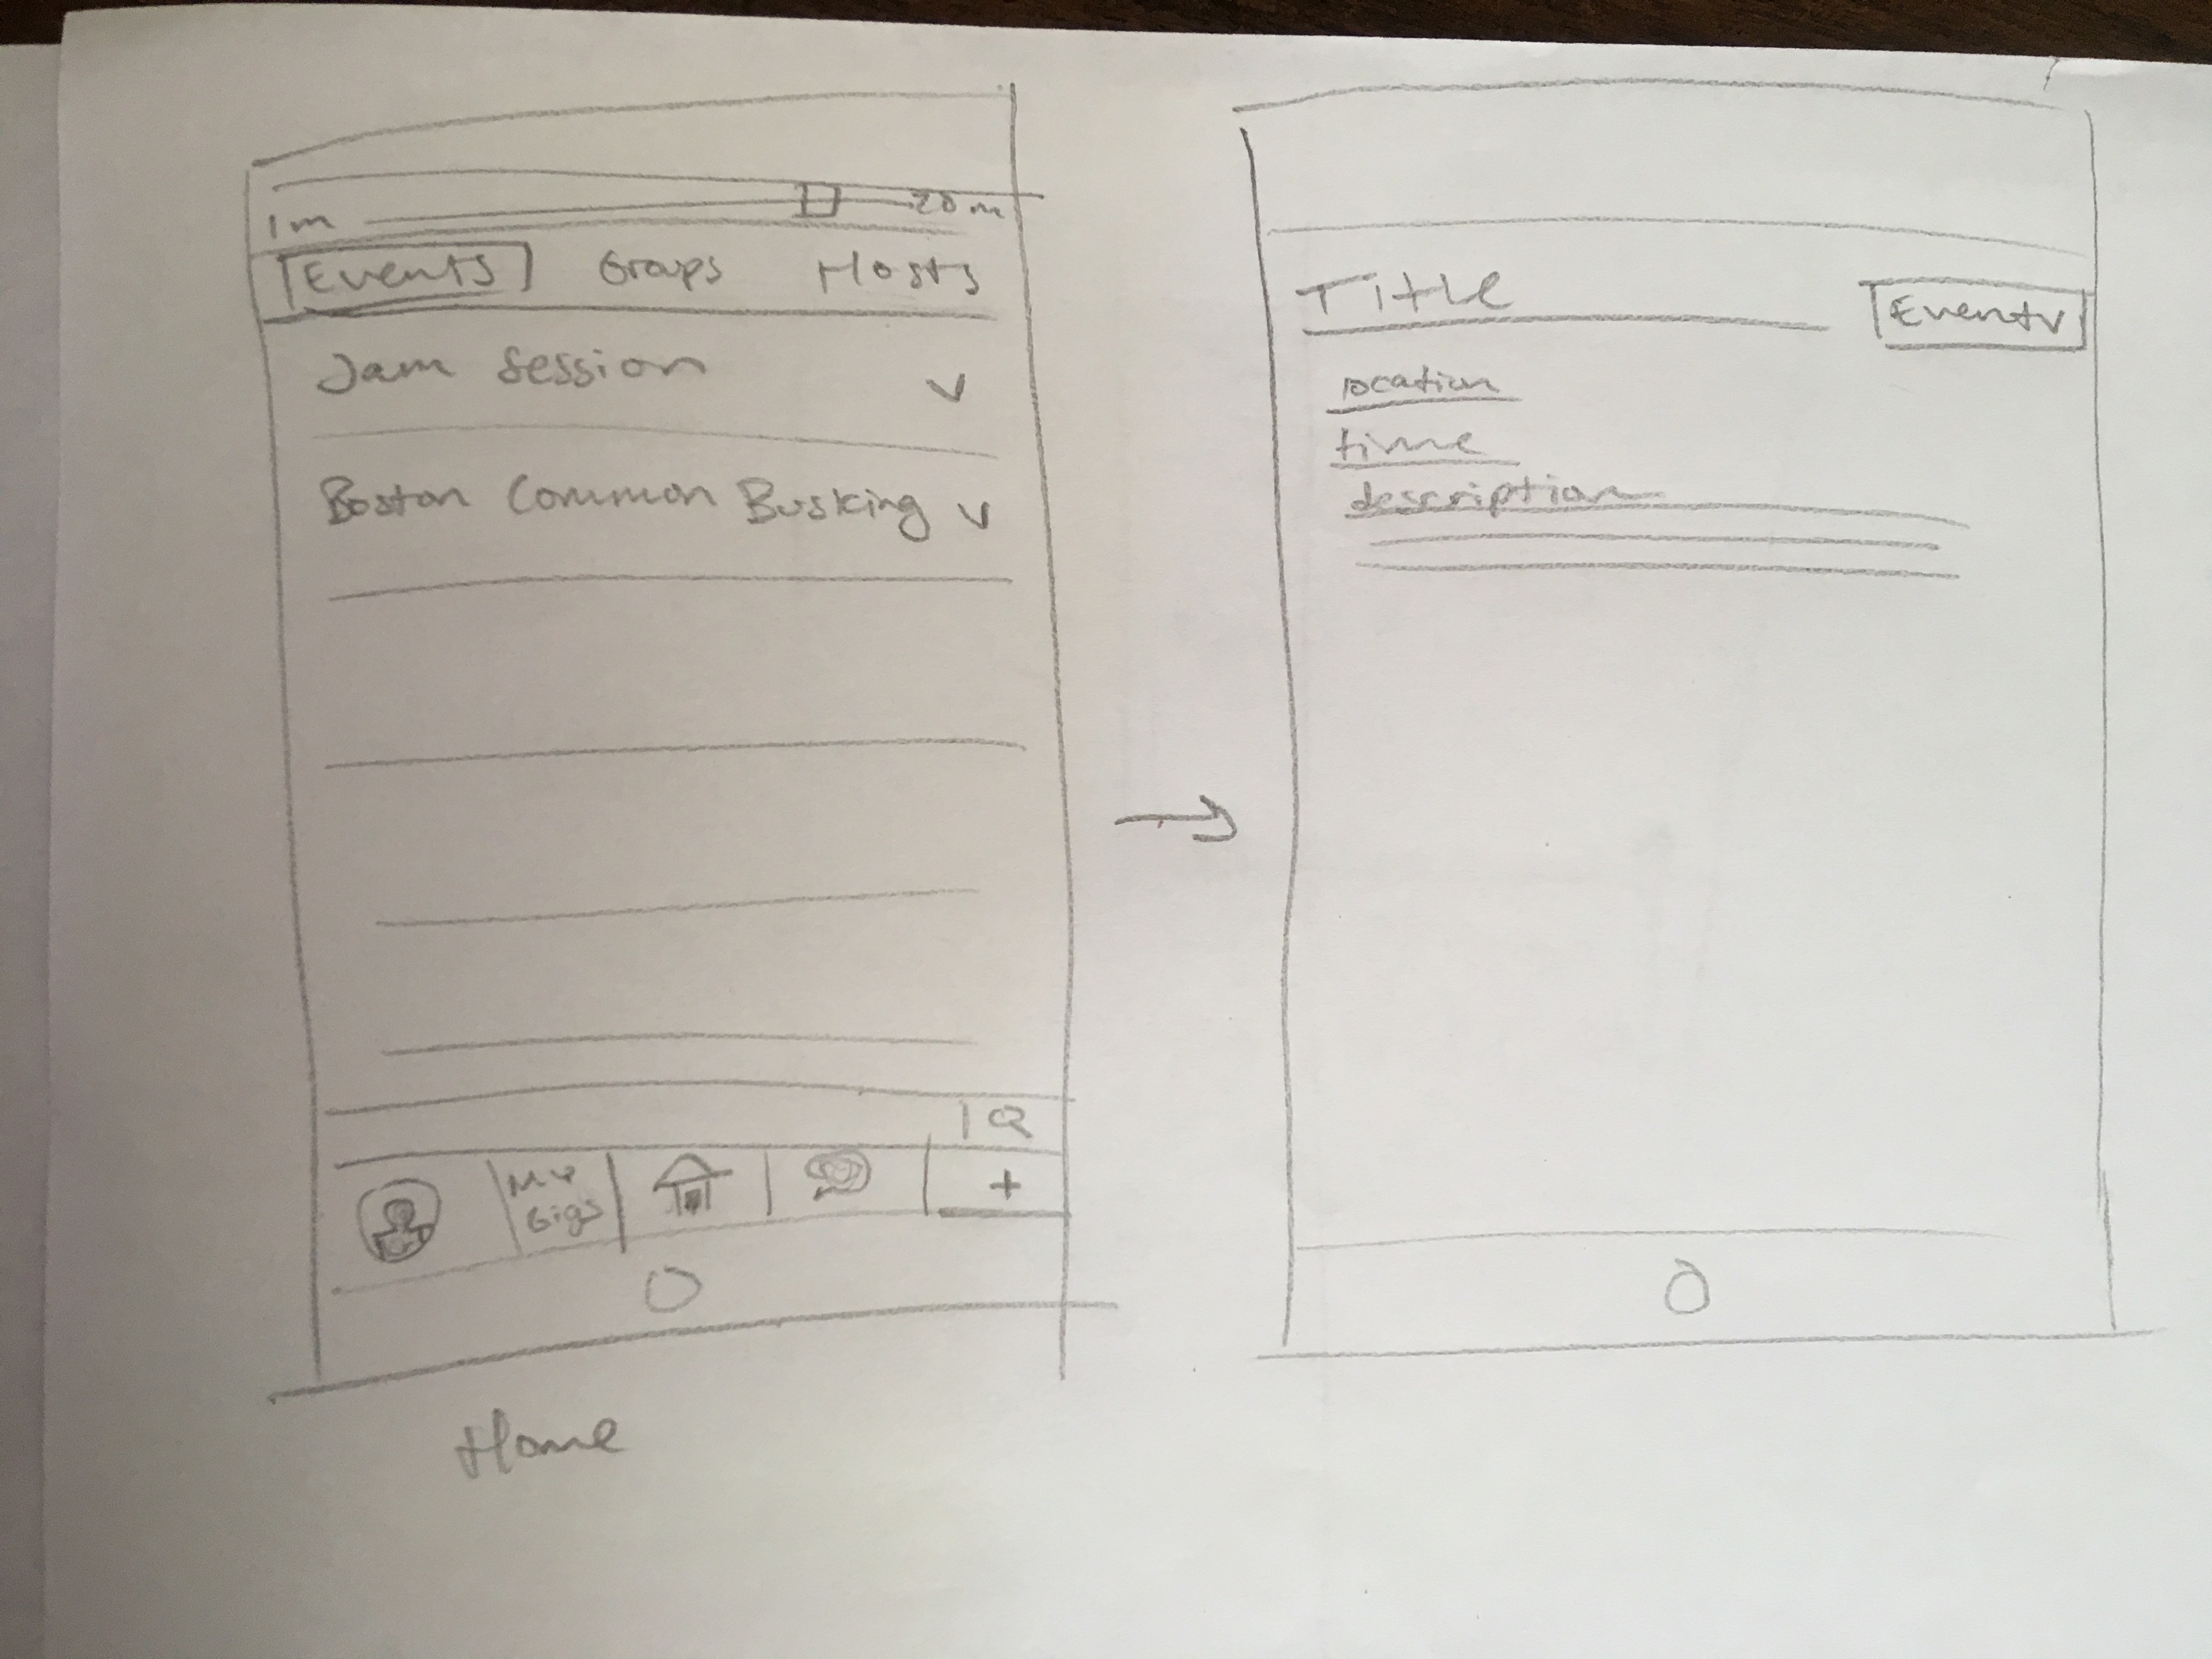 1m 20m
Events Groups Hosts
Jam Session v
Boston Common Busking v
My
Gigs
+
Home
Title
Event v
location
time
description